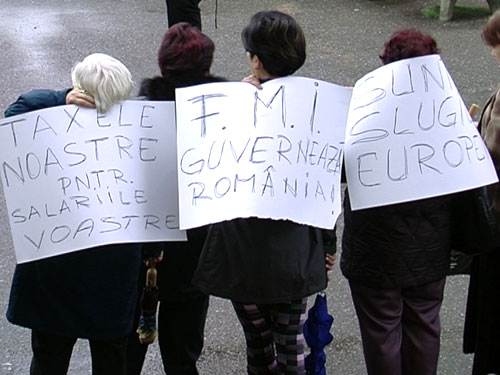 TAXELE
NOASTRE
PNTR.
SALARIILE
VOASTRE
F.M.I.
GUVERNEAZĂ
ROMÂNIA!
SUNT
SLUGI
EUROPEI